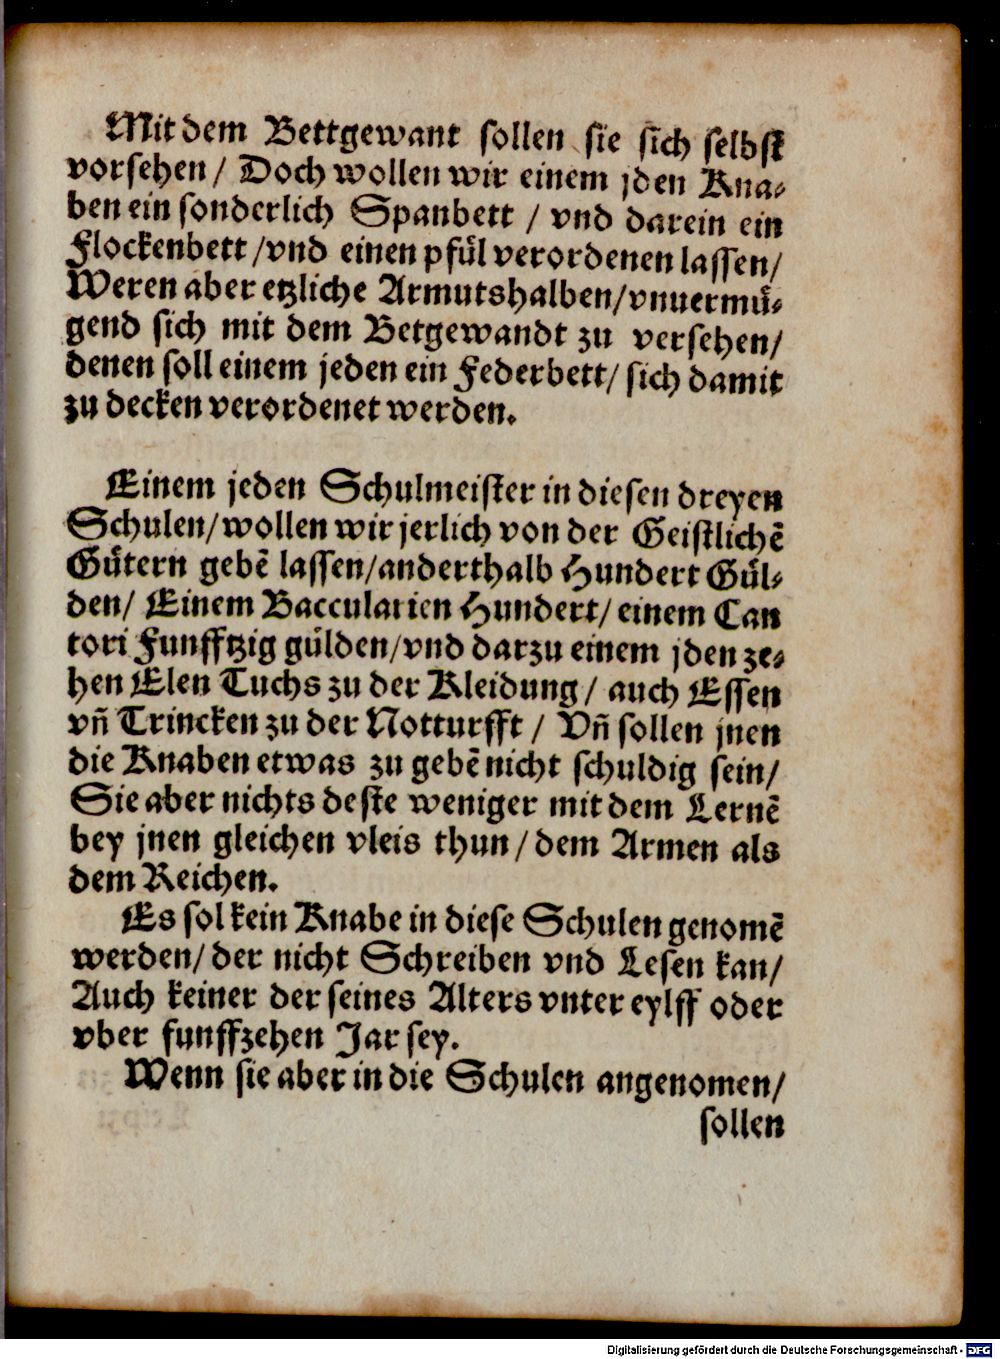 Mit dem Bettgewant sollen sie sich selbst
vorsehen / Doch wollen wir einem jden Kna⸗
ben ein sonderlich Spanbett / vnd darein ein
Flockenbett /vnd einen pfuͤl verordenen lassen/
Weren aber etzliche Armutshalben/vnuermuͤ⸗
gend sich mit dem Betgewandt zu versehen/
denen soll einem jeden ein Federbett/ sich damit
zu decken verordenet werden.
Einem jeden Schulmeister in diesen dreyen
Schulen/wollen wir jerlich von der Geistlichẽ
Guͤtern gebẽ lassen/anderthalb Hundert Guͤl⸗
den/ Einem Baccularien Hundert/ einem Can
tori Funfftzig guͤlden/vnd darzu einem jden ze⸗
hen Elen Tuchs zu der Kleidung/ auch Essen
vñ Trincken zu der Notturfft / Vñ sollen jnen
die Knaben etwas zu gebẽ nicht schuldig sein/
Sie aber nichts deste weniger mit dem Lernẽ
bey jnen gleichen vleis thun/ dem Armen als
dem Reichen.
Es sol kein Knabe in diese Schulen genomẽ
werden/ der nicht Schreiben vnd Lesen kan/
Auch keiner der seines Alters vnter eylff oder
vber funffzehen Jar sey.
Wenn sie aber in die Schulen angenomen/
sollen
Digitalisierung gefördert durch die Deutsche Forschungsgemeinschaft - DFG